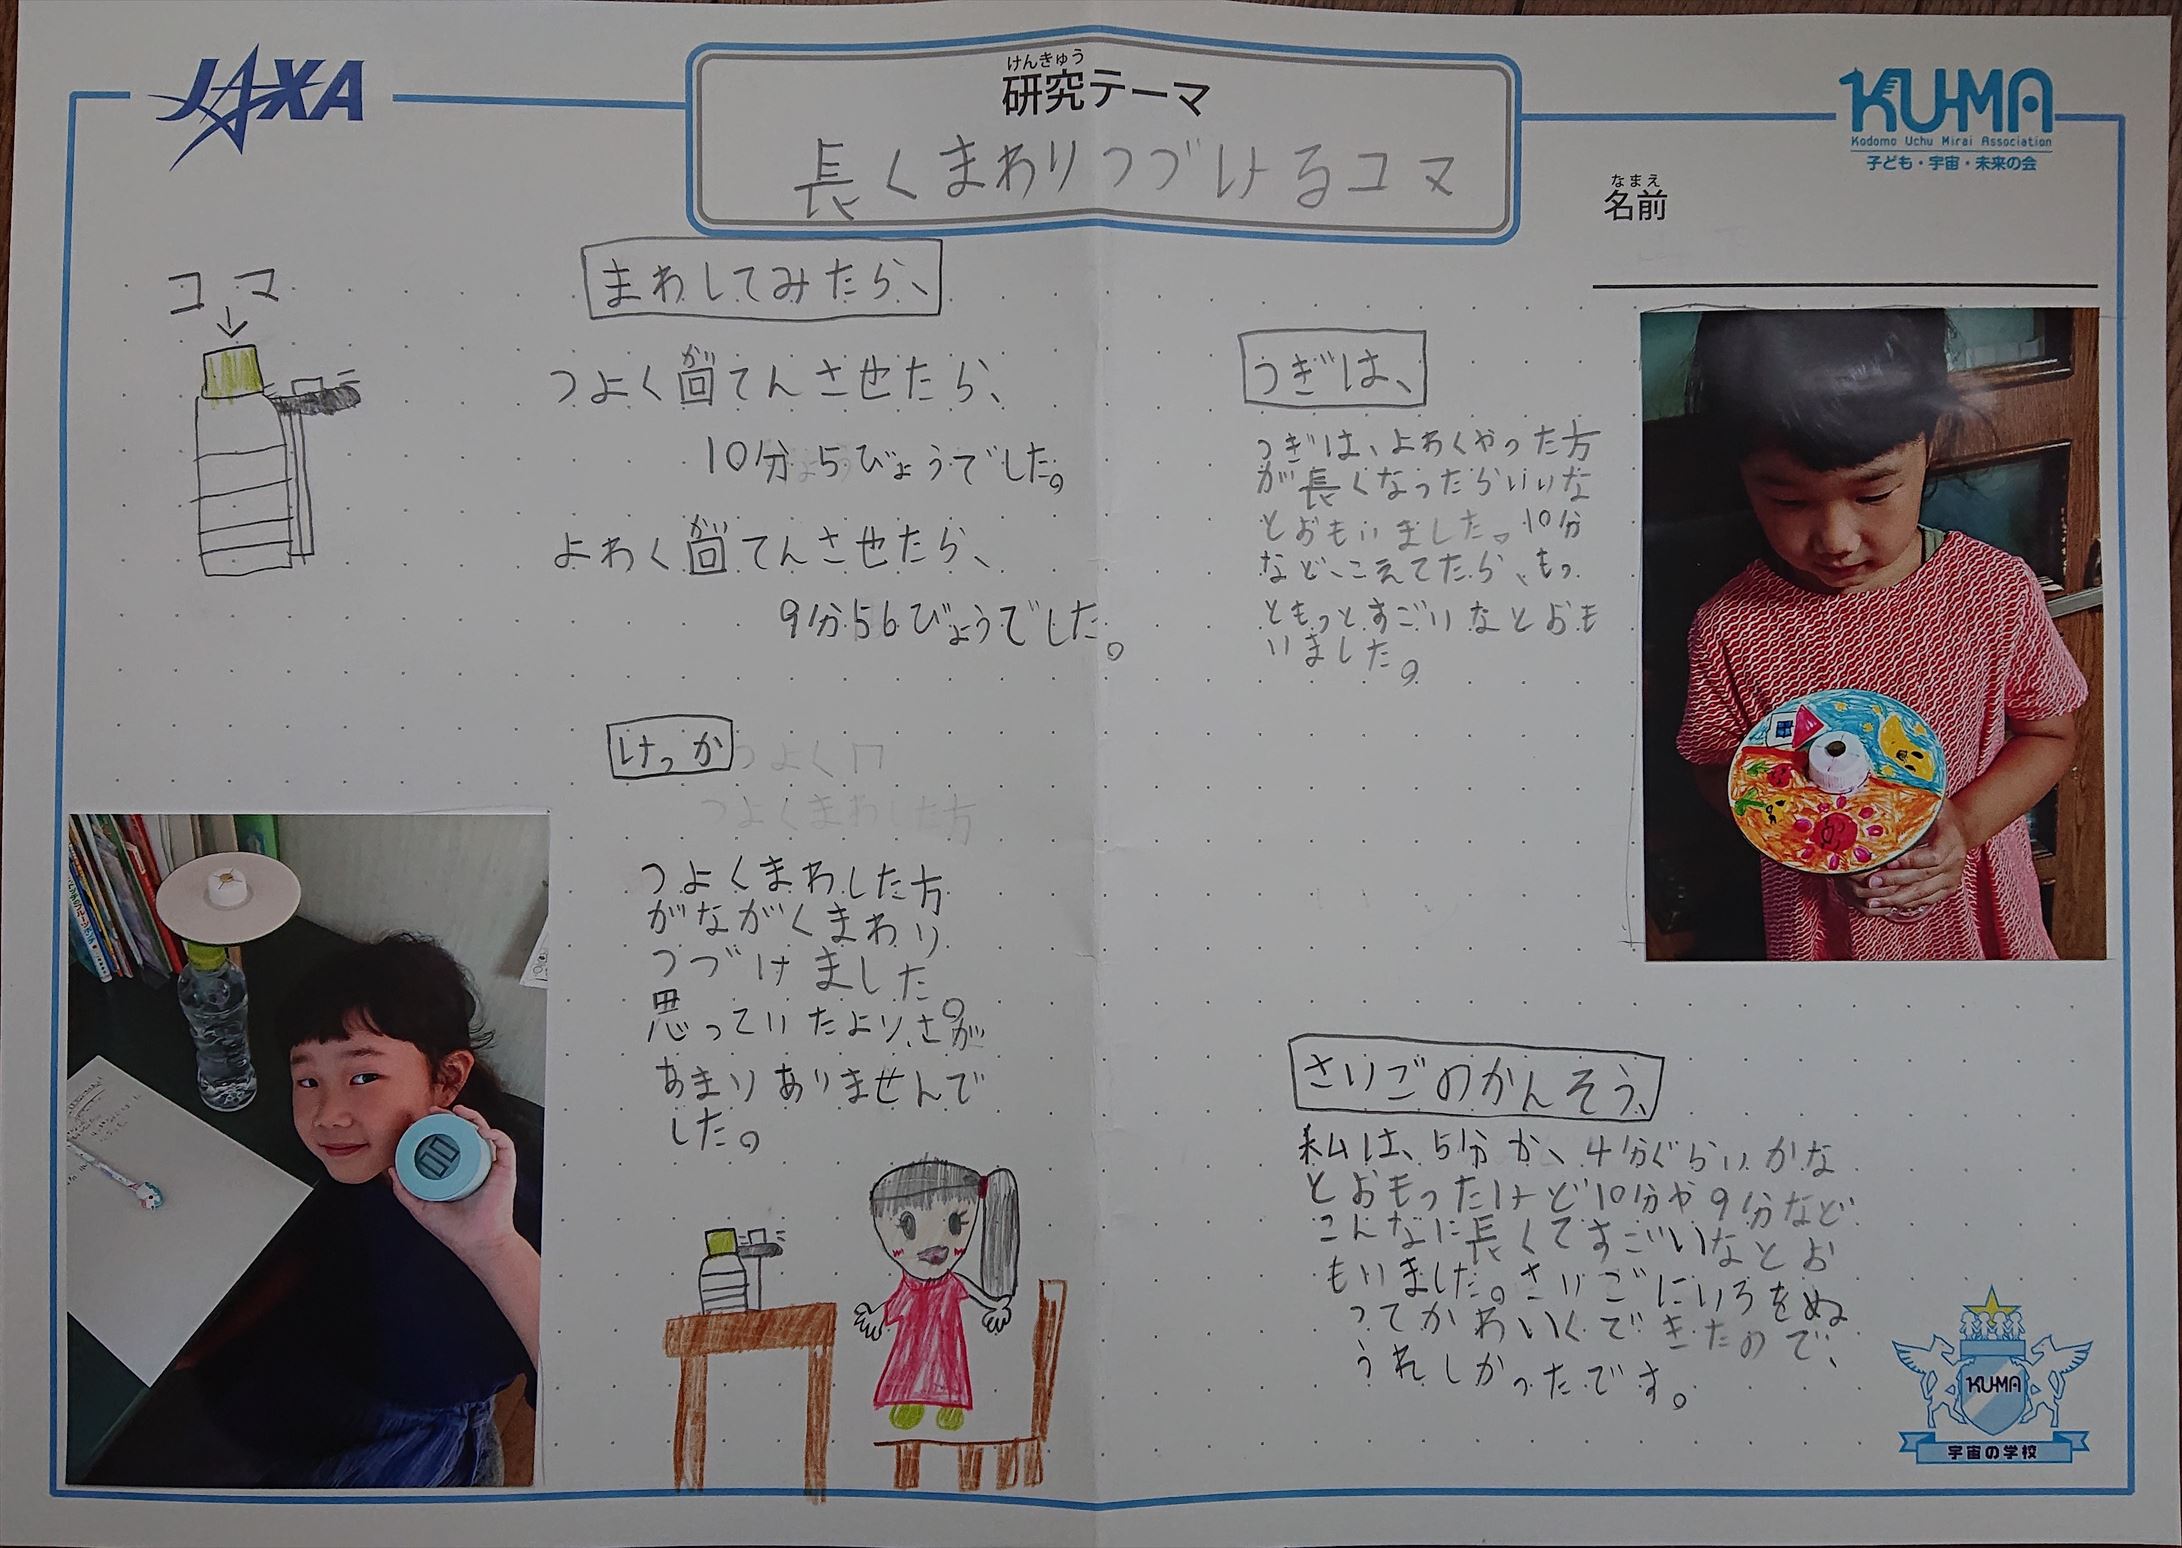 JAXA
けんきゅう
研究テーマ
長くまわりつづけるコマ
KU-MA
Kodomo Uchu Mirai Association
子ども・宇宙・未来の会
なまえ
名前
コマ
まわしてみたら、
つよく回てんさせたら、
10分5びょうでした。
よわく回てんさせたら、
9分56びょうでした。
けっか
つよくまわした方
つよくまわした方
がながくまわり
つづけました。
思っていたより、さが
あまりありませんで
した。
つぎは、
つぎは、よわくやった方
が長くなったらいいな
とおもいました。10分
など、こえてたら、もっ
ともっとすごいなとおも
いました。
さいごのかんそう、
私は、5分か、4分ぐらいかな
とおもったけど10分や9分など
こんなに長くてすごいなとお
もいました。さいごにいろをぬ
ってかわいくできたので、
うれしかったです。
KU-MA
宇宙の学校